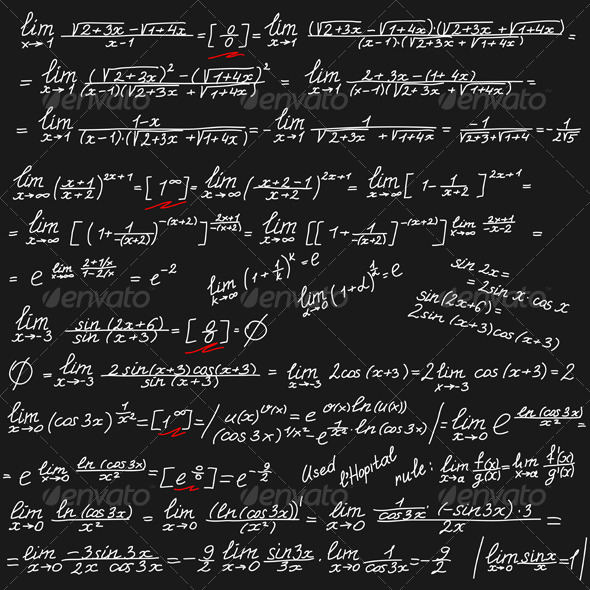 lim x→1 (√2+3x − √1+4x)/(x-1) = [0/0] = lim x→1 ((√2+3x − √1+4x)·(√2+3x + √1+4x))/((x-1)·(√2+3x + √1+4x)) =
= lim x→1 ((√2+3x)² − (√1+4x)²)/((x-1)(√2+3x + √1+4x)) = lim x→1 (2+3x−(1+4x))/((x-1)(√2+3x + √1+4x)) =
= lim x→1 (1-x)/((x-1)·(√2+3x + √1+4x)) = − lim x→1 1/(√2+3x + √1+4x) = -1/(√2+3 + √1+4) = -1/(2√5)
lim x→∞ ((x+1)/(x+2))^(2x+1) = [1^∞] = lim x→∞ ((x+2-1)/(x+2))^(2x+1) = lim x→∞ [1 - 1/(x+2)]^(2x+1) =
= lim x→∞ [(1 + 1/(-(x+2)))^(-(x+2))]^((2x+1)/(-(x+2))) = lim x→∞ [[1 + 1/(-(x+2))]^(-(x+2))]^(lim x→∞ (2x+1)/(-x-2)) =
= e^(lim x→∞ (2+1/x)/(-1-2/x)) = e^(-2)
lim k→∞ (1 + 1/k)^k = e
lim α→0 (1+α)^(1/α) = e
sin 2x =
= 2sin x · cos x
sin(2x+6) =
2sin (x+3)cos(x+3)
lim x→-3 sin (2x+6)/sin (x+3) = [0/0] = ∅
∅ = lim x→-3 2 sin(x+3)cos(x+3)/sin (x+3) = lim x→-3 2cos (x+3) = 2 lim x→-3 cos (x+3) = 2
lim x→0 (cos 3x)^(1/x²) = [1^∞] = / u(x)^(v(x)) = e^(v(x)ln(u(x))) (cos 3x)^(1/x²) = e^(1/x² · ln(cos 3x)) / = lim x→0 e^(ln(cos 3x)/x²) =
= e^(lim x→0 ln(cos 3x)/x²) = [e^(0/0)] = e^(-9/2)
Used l'Hopital rule: lim x→a f(x)/g(x) = lim x→a f'(x)/g'(x)
lim x→0 ln(cos 3x)/x² = lim x→0 (ln(cos 3x))'/(x²)' = lim x→0 (1/cos 3x · (-sin 3x) · 3)/2x =
= lim x→0 (-3sin 3x)/(2x cos 3x) = -9/2 lim x→0 sin3x/3x · lim x→0 1/cos 3x = -9/2 | lim x→0 sin x/x = 1 |
envato